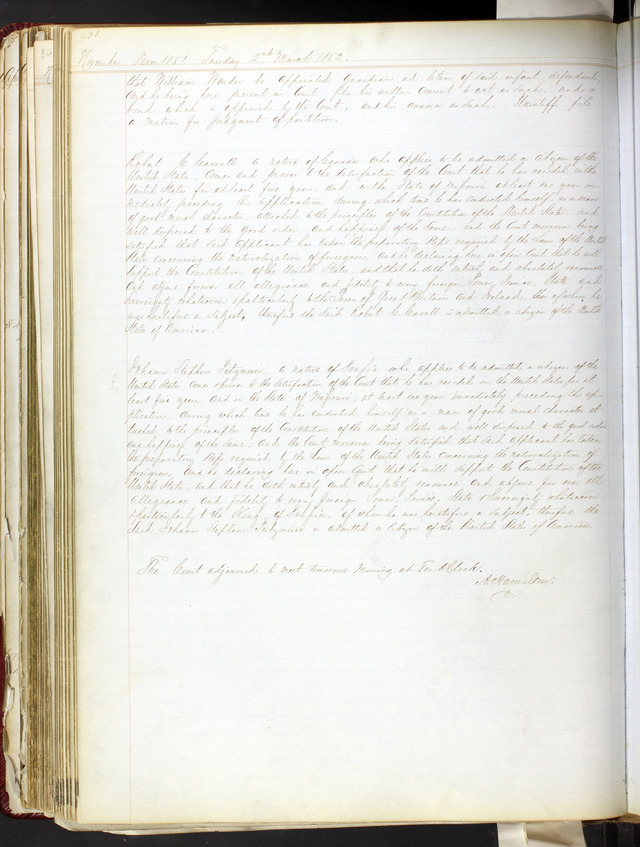 431
November Term 1851 Tuesday 2nd March 1852.
that William be appointed Guardian ad litem of said infant defendants,
and he being here present in Court his written consent to act as such, and a
bond which is approved by the Court, and his answer as such. Plaintiff file
a motion for judgment of partition.
Robert C Carroll a native of Canada who applies to be admitted a citizen of the
United States comes and proves to the satisfaction of the Court that he has resided in the
United States for at least five years, and in the State of Missouri at least one year im-
mediately preceding this application during which time he has conducted himself as a man
of good moral character, attached to the principles of the Constitution of the United States, and
well disposed to the good order and happiness of the same, and the Court moreover being
satisfied that said applicant has taken the preparatory steps required by the laws of the United
States concerning the naturalization of foreigners and he declaring here in open Court that he will
support the Constitution of the United States, and that he doth entirely and absolutely renounce
and abjure forever all allegiance and fidelity to every foreign Power, Prince, State and
Sovereignty whatsoever & particularly to the Queen of Great Britain and Ireland of whom he
was heretofore a subject, therefore the said Robert C Carroll is admitted a citizen of the United
States of America.
Johann Stephen a native of who applies to be admitted a citizen of the
United States comes & proves to the satisfaction of the Court that he has resided in the United States for at
least five years and in the State of Missouri, at least one year immediately preceding this ap-
plication, during which time he has conducted himself as a man of good moral character at-
tached to the principles of the Constitution of the United States and well disposed to the good order
and happiness of the same, and the Court moreover being satisfied that said applicant has taken
the preparatory steps required by the laws of the United States concerning the naturalization of
foreigners, and he declaring here in open Court that he will support the Constitution of the
United States, and that he doth entirely and absolutely renounce and abjure for ever all
allegiance and fidelity to every foreign Power, Prince, State & Sovereignty whatsoever
& particularly to the King of of whom he was heretofore a subject, therefore the
said Johann Stephen is admitted a citizen of the United States of America.
The Court adjourned to meet tomorrow morning at Ten O'Clock.
A. Hamilton.